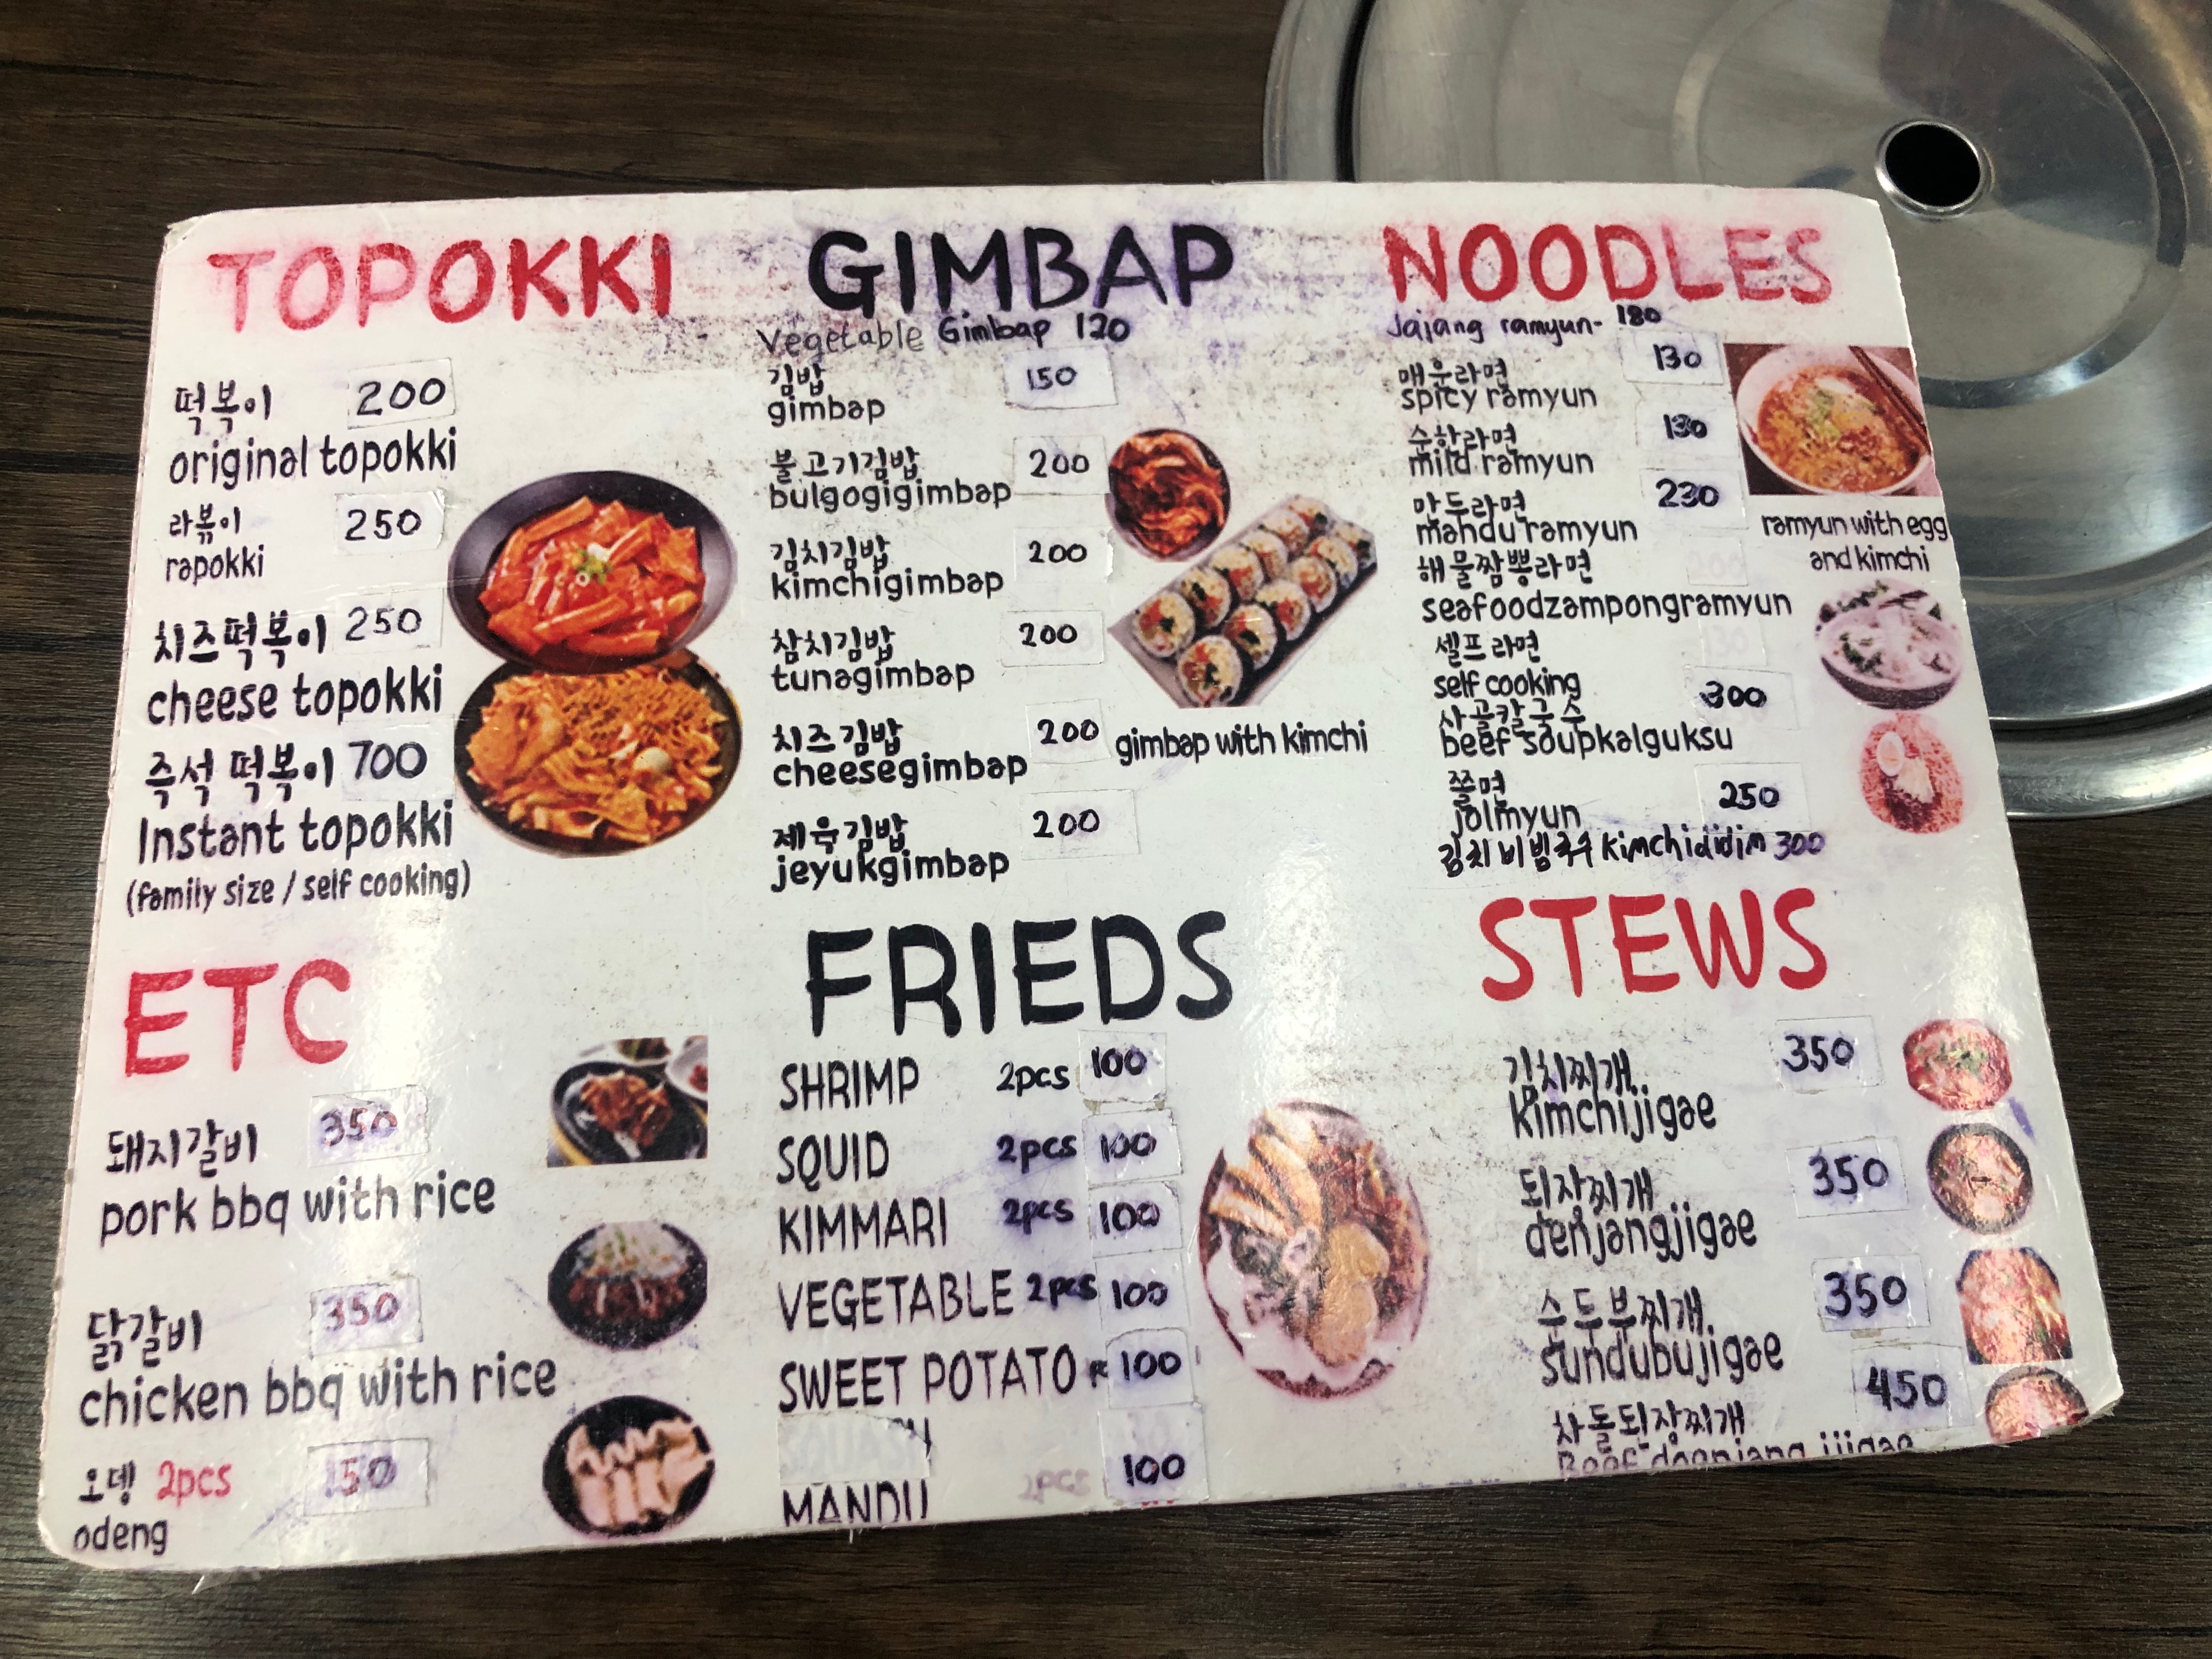 TOPOKKI
떡볶이 200
original topokki
라볶이 250
rapokki
치즈떡볶이 250
cheese topokki
즉석 떡볶이 700
Instant topokki
(family size / self cooking)
ETC
돼지갈비 350
pork bbq with rice
닭갈비 350
chicken bbq with rice
오뎅 2pcs 150
odeng
GIMBAP
Vegetable Gimbap 120
김밥 150
gimbap
불고기김밥 200
bulgogigimbap
김치김밥 200
kimchigimbap
참치김밥 200
tunagimbap
치즈김밥 200
cheesegimbap
제육김밥 200
jeyukgimbap
gimbap with kimchi
FRIEDS
SHRIMP 2pcs 100
SQUID 2pcs 100
KIMMARI 2pcs 100
VEGETABLE 2pcs 100
SWEET POTATO 100
MANDU 2pcs 100
NOODLES
Jajang ramyun- 180
매운라면 130
spicy ramyun
순한라면 130
mild ramyun
만두라면 230
mandu ramyun
해물짬뽕라면
seafoodzampongramyun
셀프라면
self cooking
사골칼국수 300
beef soupkalguksu
쫄면 250
jolmyun
김치비빔국수 kimchididim 300
ramyun with egg
and kimchi
STEWS
김치찌개 350
kimchijigae
된장찌개 350
denjangjigae
순두부찌개 350
sundubujigae
차돌된장찌개 450
Beef doenjang jjigae